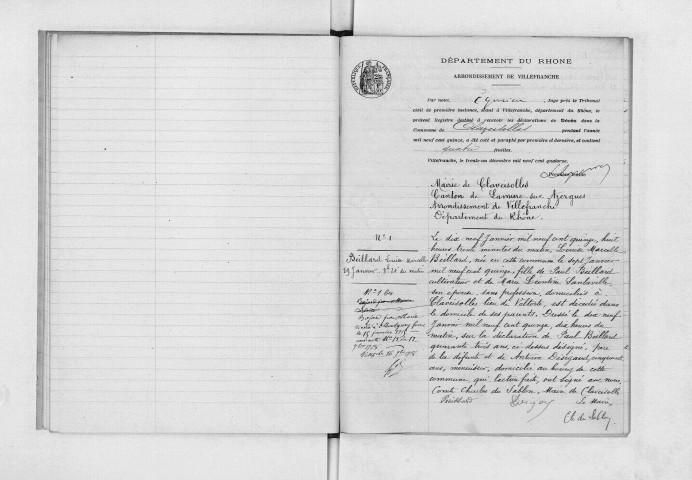 DÉPARTEMENT DU RHONE
ARRONDISSEMENT DE VILLEFRANCHE
Par nous, Juge près le Tribunal
civil de première instance, séant à Villefranche, département du Rhône, le
présent Registre destiné à recevoir les déclarations de Décès dans la
Commune de Claveisolles pendant l'année
mil neuf cent quinze, a été coté et paraphé par première et dernière, et contient
quatre feuilles.
Villefranche, le trente-un décembre mil neuf cent quatorze.
Mairie de Claveisolles
Canton de Lamure sur Azergues
Arrondissement de Villefranche
Département du Rhône.
N° 1
Beillard Louise Marcelle
19 Janvier
Le dix neuf Janvier mil neuf cent quinze, huit
heures trente minutes du matin, Louise Marcelle
Beillard, née en cette commune le sept Janvier
mil neuf cent quinze, fille de Paul Beillard
cultivateur et de Marie Leontine
son épouse, sans profession, domiciliés à
Claveisolles lieu de est decédée dans
le domicile de ses parents. Dressé le dix neuf
Janvier mil neuf cent quinze, dix heures du
matin, sur la déclaration de Paul Beillard
quarante trois ans, ci dessus désigné, père
de la defunte et de Antoine cinquante
ans, menuisier, domicilié au bourg de cette
commune qui, lecture faite, ont signé avec nous,
Comte Charles du Sablon, Maire de Claveisolles
Beillard Le Maire,
Ch. du Sablon